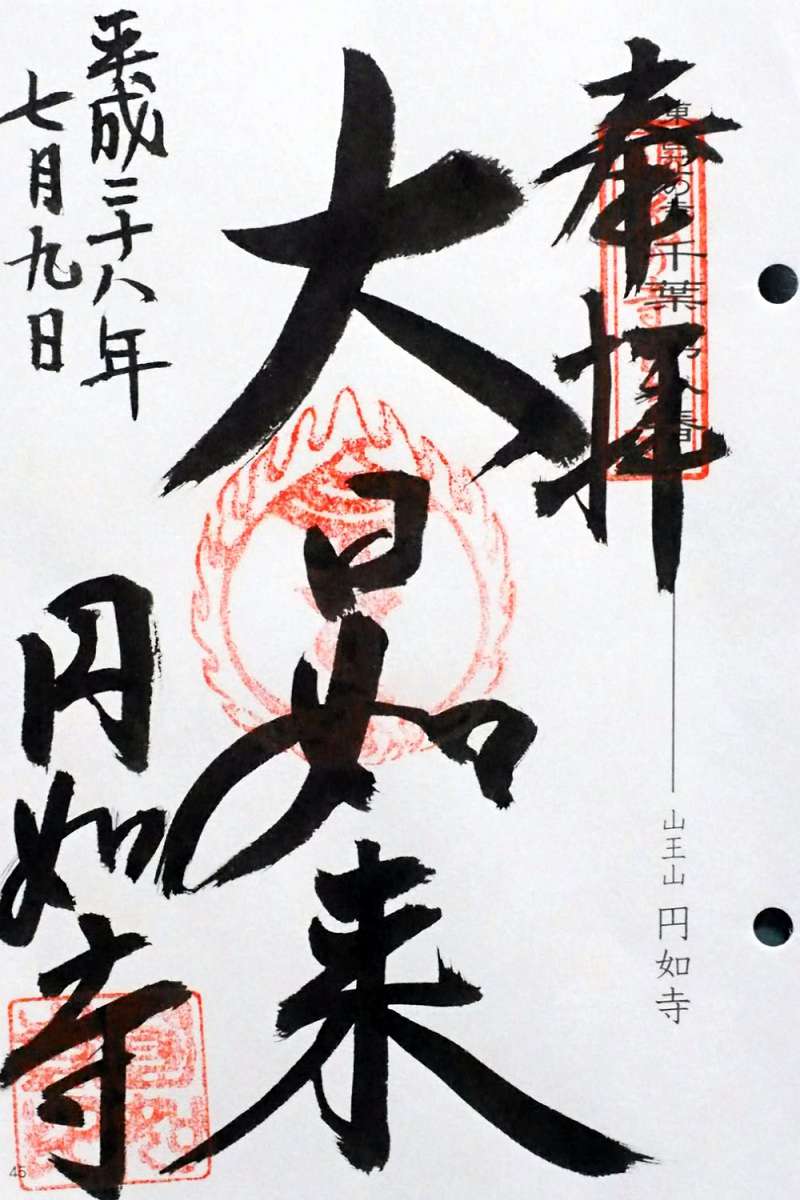 奉拝
千葉
山王山 円如寺
大日如来
平成二十八年
七月九日
円如寺
45